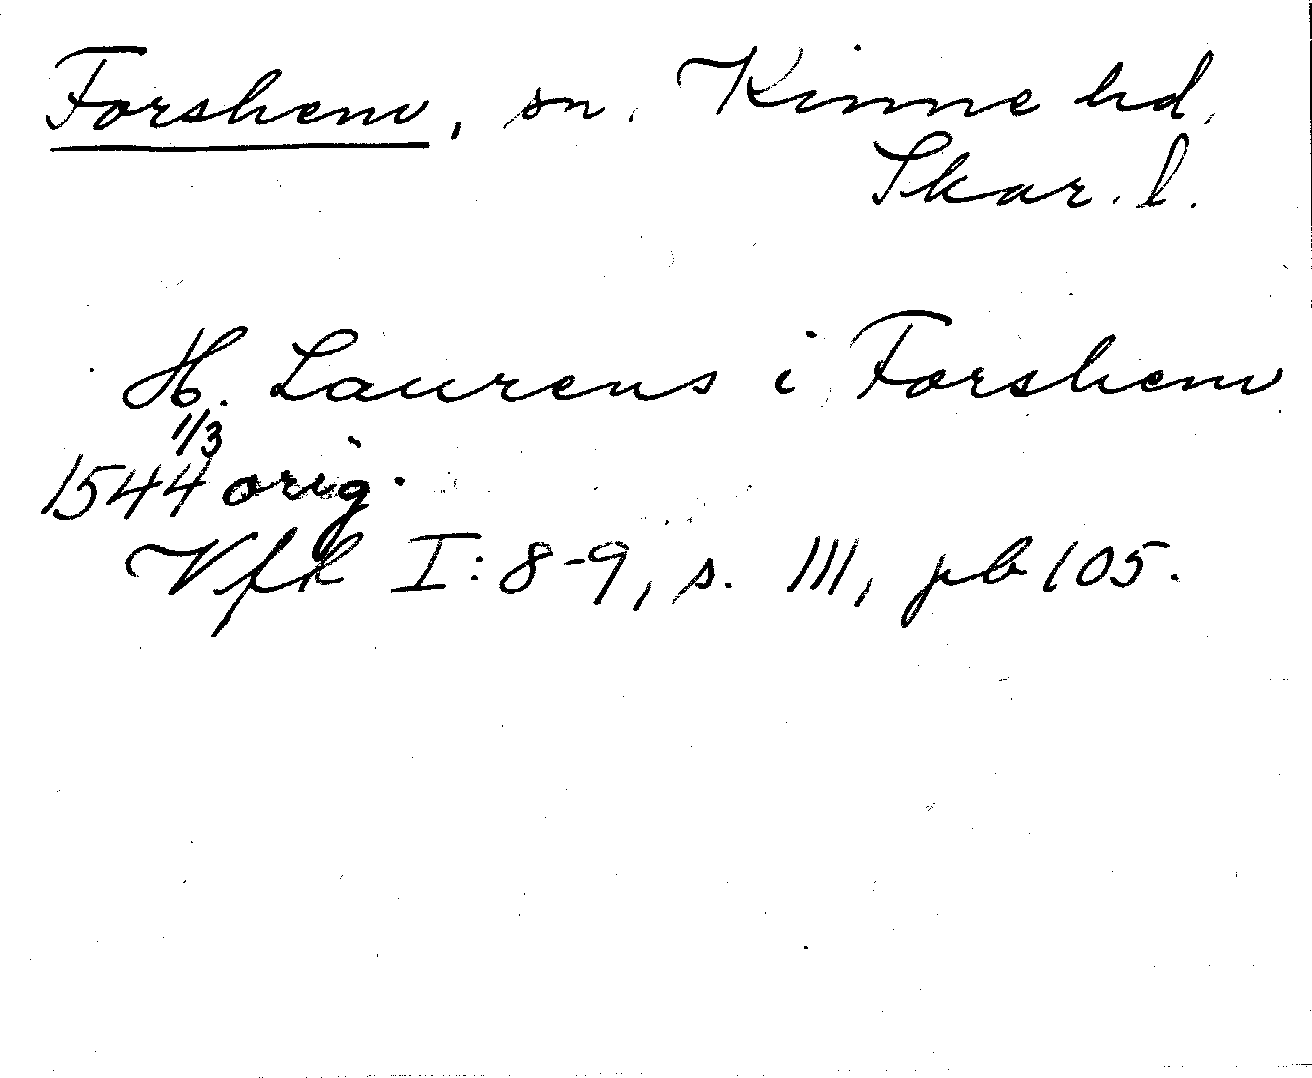 Forshem, sn. Kinne hd.
Skar. l.
H. Laurens i Forshem
1544 1/3 orig.
Vfk I:8-9, s. 111, pb 105.